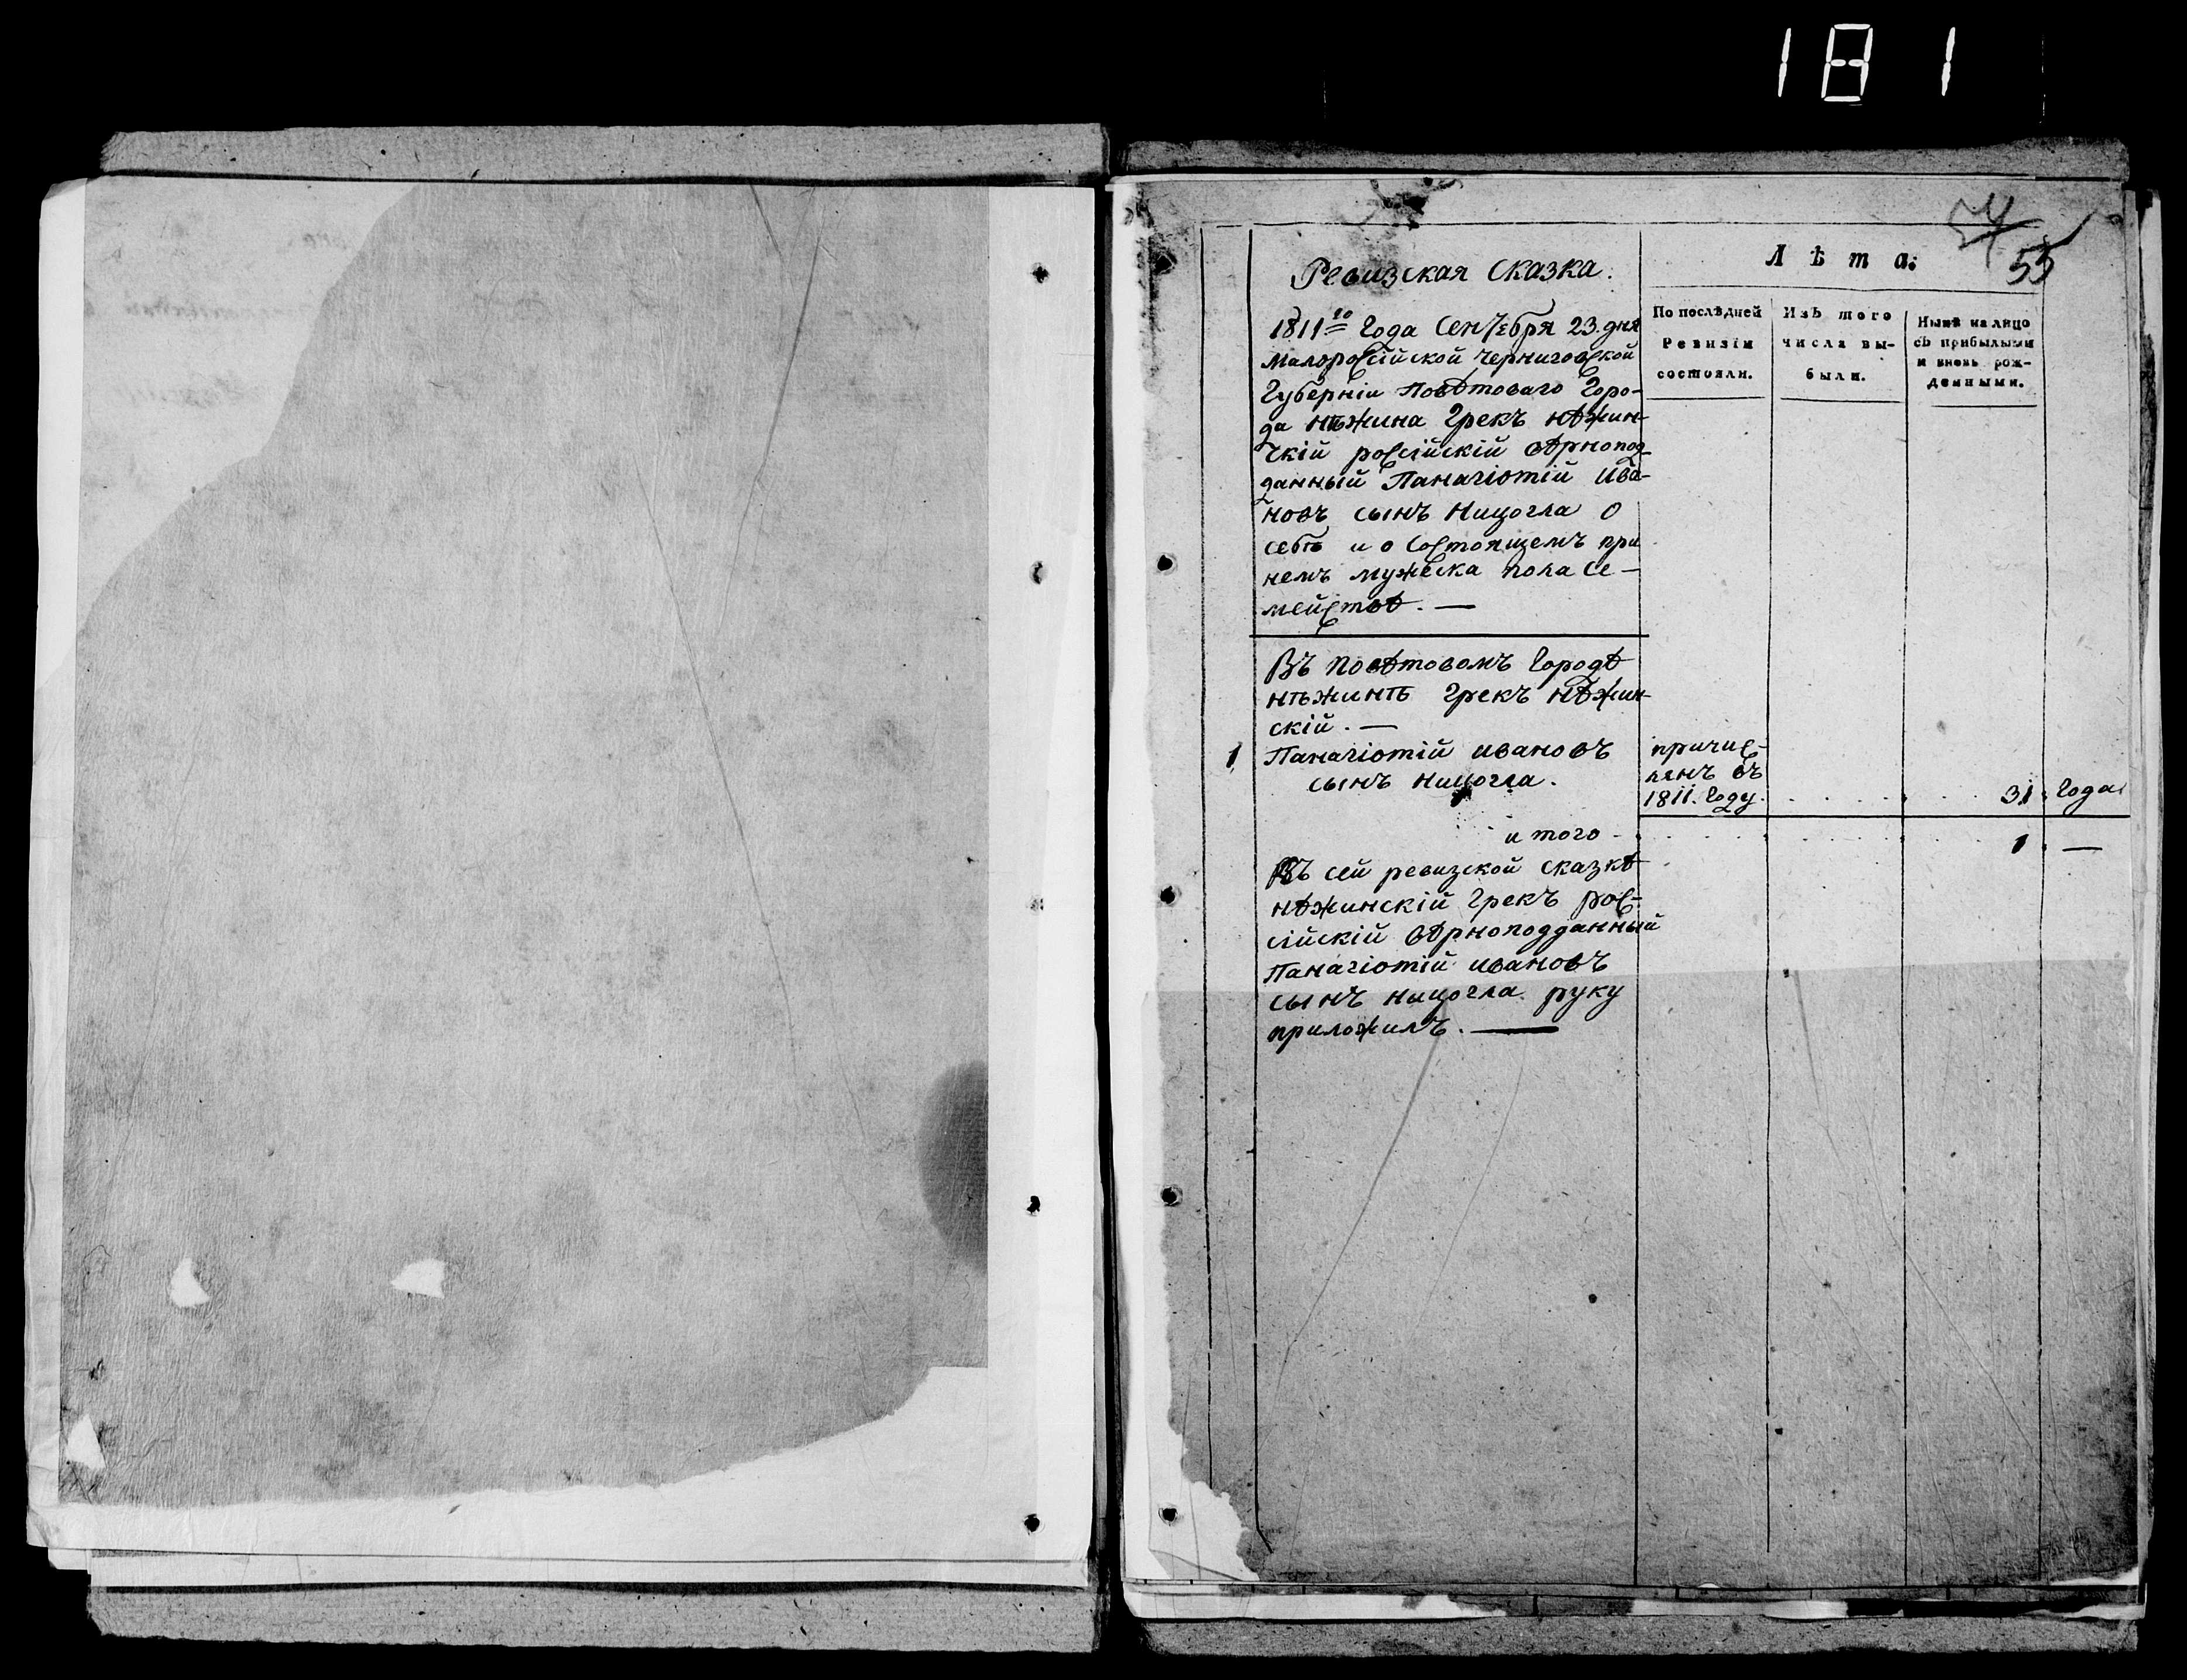 181
55
Ревизская Сказка.
1811го Года Сентебря 23. дня
Малоросійской Черниговской
Губерніи Повѣтоваго Горо-
да нѣжина Грекъ нѣжин-
скій россійскій вѣрнопод-
данный Панагіотій Ива-
новъ сынъ Ницогла о
себѣ и о Состоящемъ при
немъ мужеска пола Се-
мействѣ. —
Лѣта:
По послѣдней
Ревизіи
состояли.
Изъ того
числа вы-
были.
Нынѣ на лицо
съ прибылыми
и вновь рож-
денными.
Въ Повѣтовомъ Городѣ
нѣжинѣ Грекъ нѣжин-
скій. —
1 Панагіотій ивановъ
сынъ ницогла.
причис-
лянъ въ
1811. Году. 31. Года
и того - 1. —
Въ сей ревизской Сказкѣ
нѣжинскій Грекъ рос-
сійскій вѣрноподданный
Панагіотій ивановъ
сынъ ницогла руку
приложилъ. —